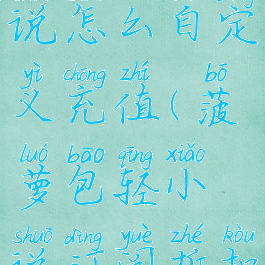 说怎么自定
yì chōng zhí bō
义充值(菠
luó bāo qīng xiǎo
萝包轻小
shuō dìng yuè zhé kòu
说订阅折扣